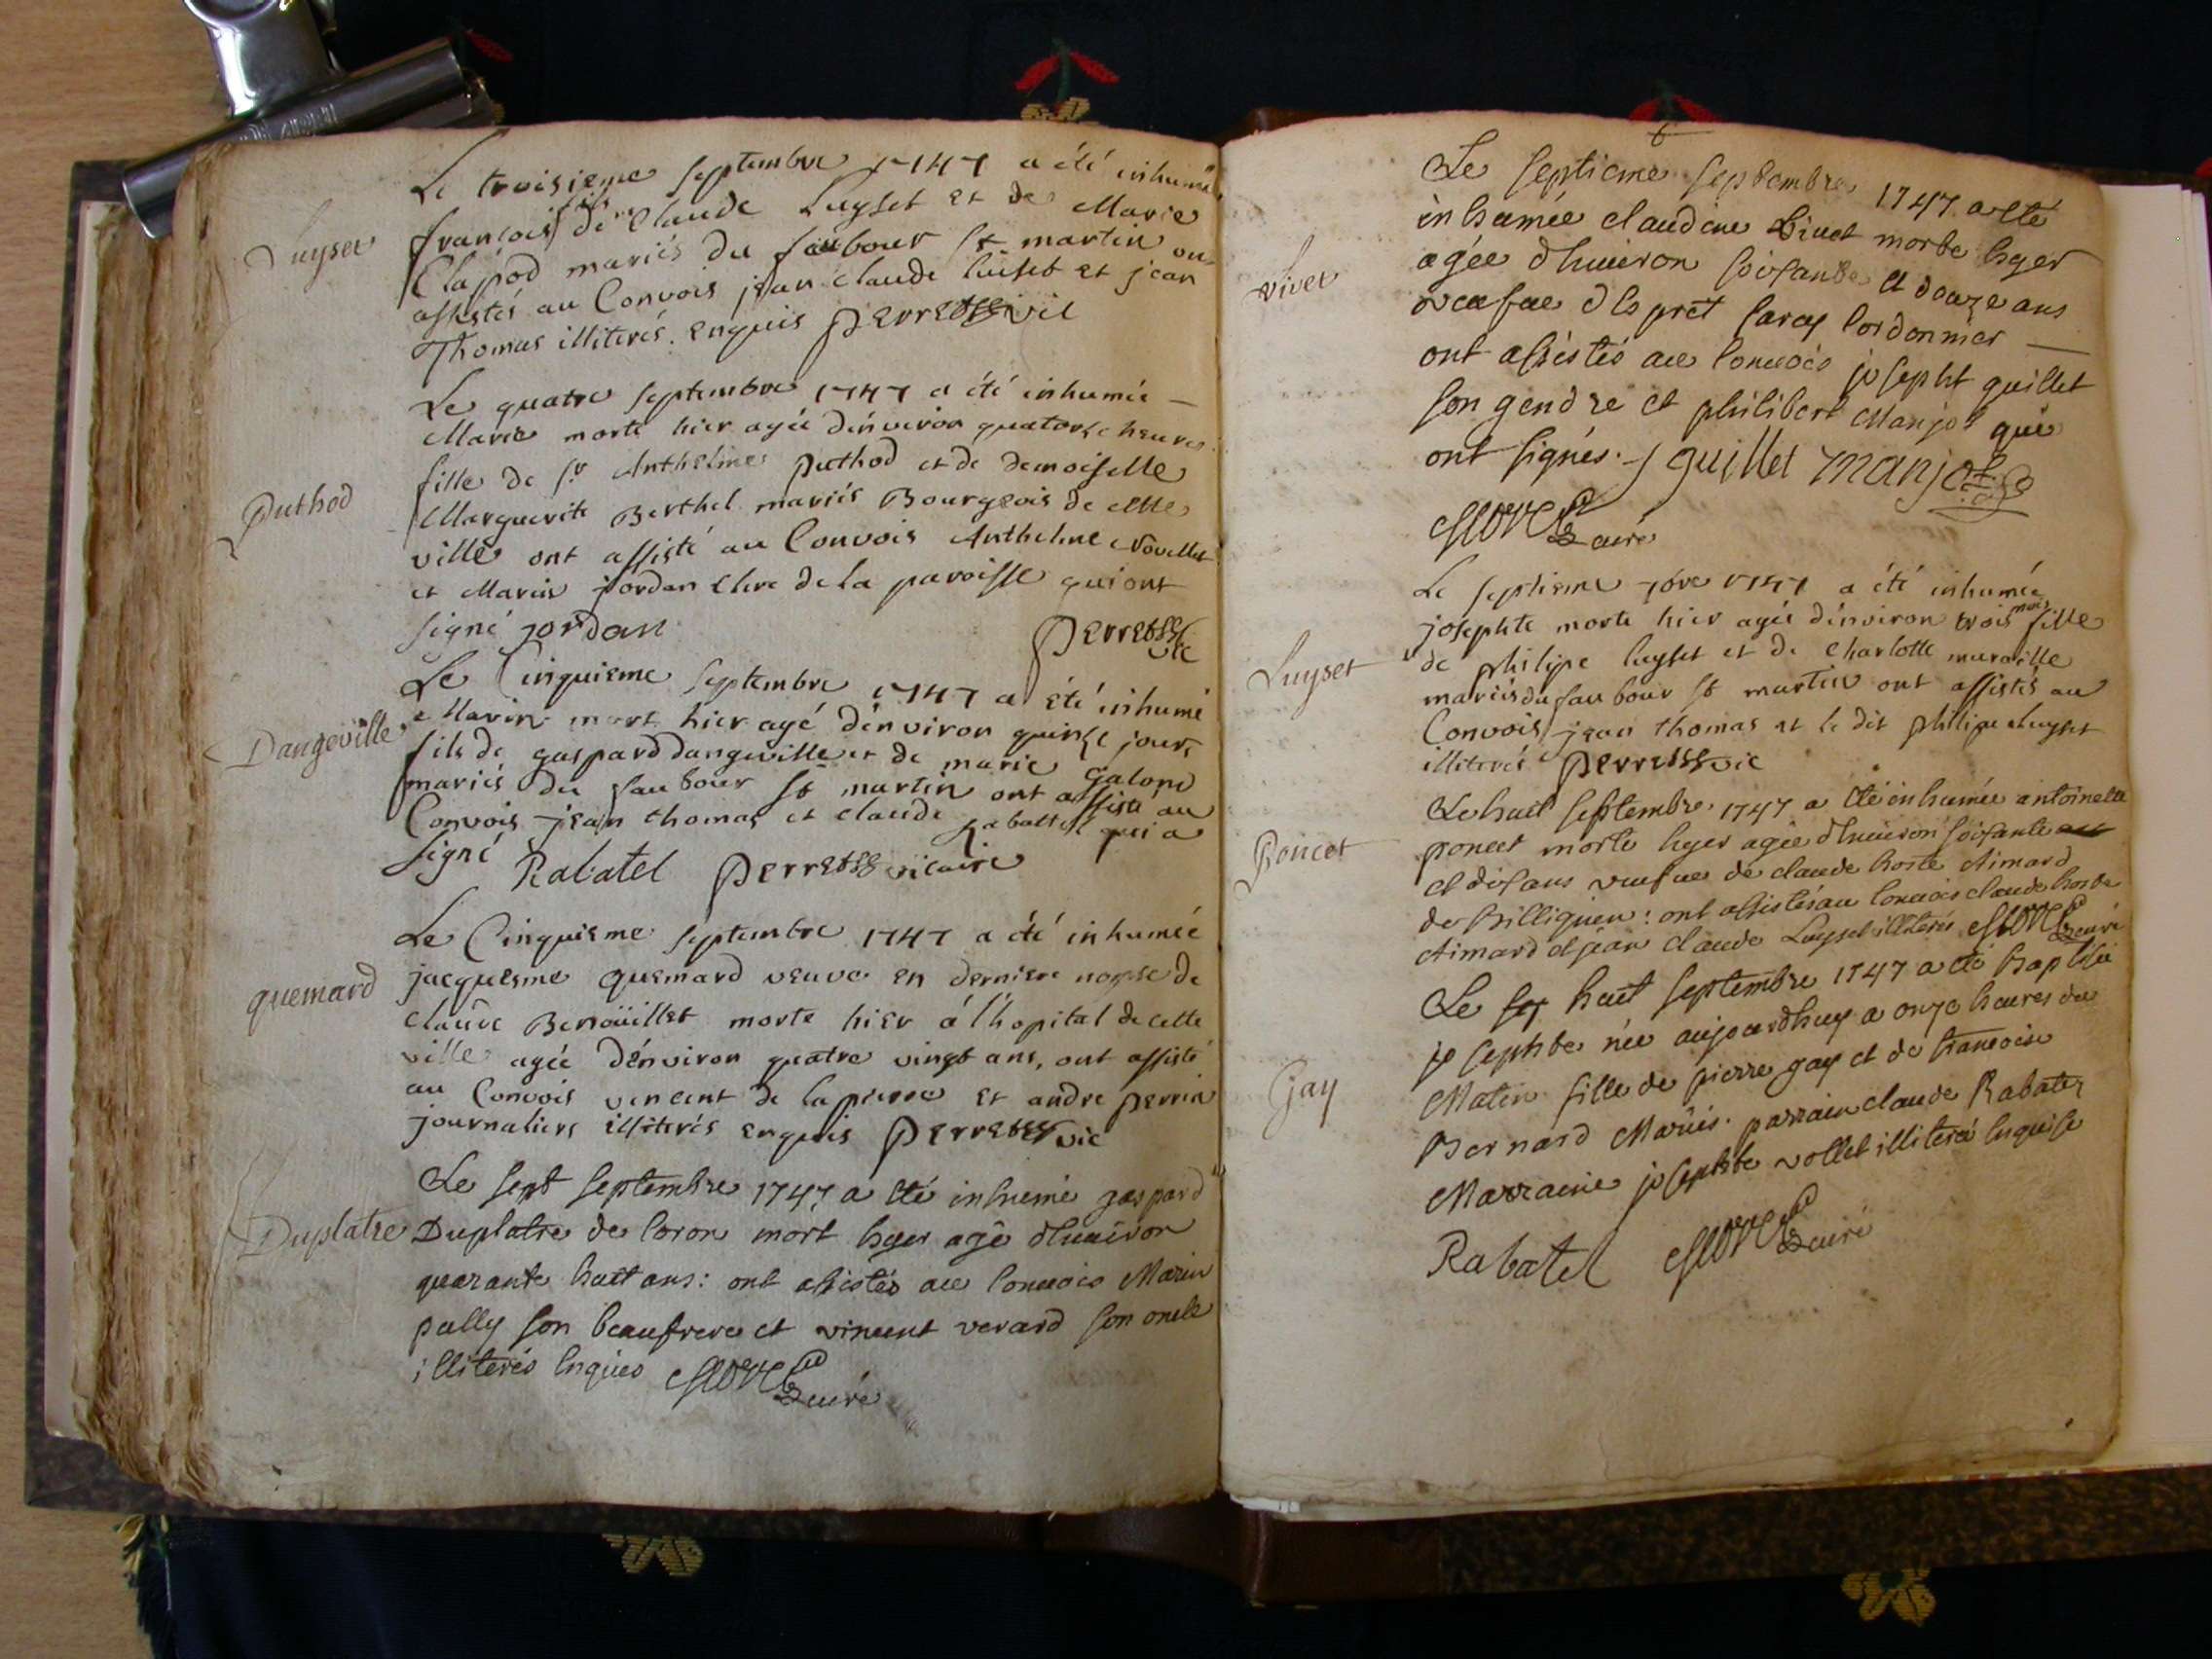 Luyset
Le troisieme septembre 1747 a été inhumé
françois fils de Claude Luyset et de Marie
Clapod mariés du faubour st martin on
assistés au Convois jean claude luiset et jean
Thomas illiterés enquis Perret vic
Puthod
Le quatre septembre 1747 a été inhumée
Marie morte hier agée dénviron quatorse heures
fille de sr Anthelme puthod et de demoiselle
Marguerite Berthel mariés Bourgeois de cette
ville ont assisté au Convois Anthelme Novellet
et Marin jordan clerc de la paroisse qui ont
signé jordan Perret vic
Dangeville
Le Cinquieme septembre 1747 a été inhumé
Marin mort hier agé dénviron quinse jours
fils de gaspard dangeville et de marie galone
mariés du faubour st martin ont assisté au
Convois jean thomas et claude Rabattel qui a
signé Rabatel Perret vicaire
quemard
Le Cinquisme septembre 1747 a été inhumée
jacquesme quemard veuve en derniere nopse de
claude morte hier á l'hopital de cette
ville agée dénviron quatre vingt ans, ont assisté
au Convois vincent de lapierre et andre perrin
journaliers illiterés enquis Perret vic
Duplatre
Le sept septembre 1747 a été inhumé gaspard
Duplatre de loron mort hyer agé dhuiron
quarante huit ans: ont assistés au convois Marin
pally son beaufrere et vincent verard son oncle
illiterés enquis curé
vivet
Le septieme septembre 1747 a eté
inhumée claudine vivet morte hyer
agée dhuiron soisante et douze ans
veufue despret cordonnier
ont assistés au convois josepht guillet
son gendre et philibert Manjot qui
ont signés. J guillet Manjot
curé
Luyset
Le septieme 7bre 1747 a été inhumée
josephte morte hier agée dénviron trois mois fille
de philipe luyset et de Charlotte muraille
mariés du faubour st martin ont assistés au
Convois jean thomas et le dit philipe Luyset
illiterés Perret vic
Poncet
Le huit septembre 1747 a été inhumée antoinette
poncet morte hyer agée dhuiron soisante
et dis ans veufue de claude hoste Aimard
de Billiguen: ont assistés au convois claude hoste
Aimard et jean claude Luyset illiterés curé
Gay
Le huit septembre 1747 a été Baptisée
josephte née aujourdhuy a onze heures du
Matin fille de pierre gay et de francoise
Bernard Mariés. parrain claude Rabatel
Marraine josephte vollet illiterée enquise
Rabatel curé